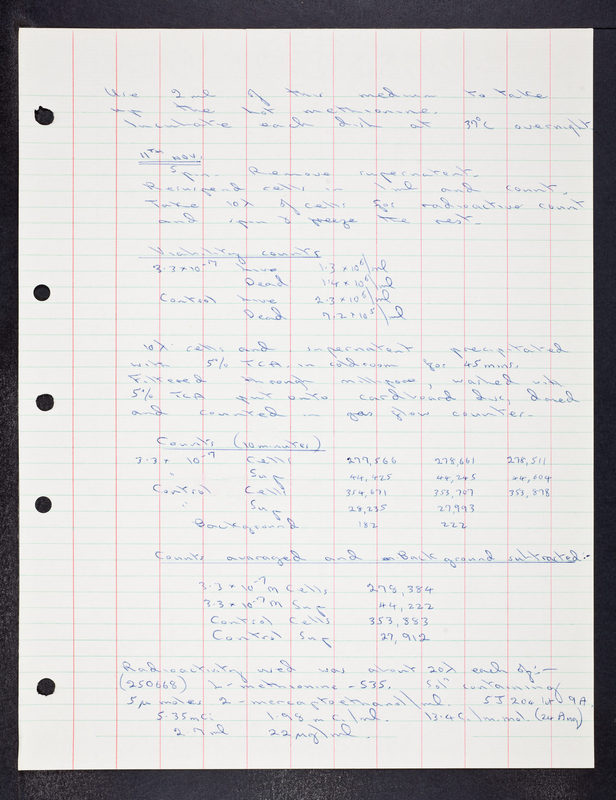 Use 2 ml of this medium to take
up the hot methionine.
Incubate each dish at 37°C overnight
11TH NOV.
Spin. Remove supernatent.
Resuspend cells in 1 ml and count.
Take 10λ of cells for radioactive count
and spin & freeze the rest.
Viability counts
3.3 × 10⁻⁷ Live 1.3 × 10⁶/ml
Dead 1.4 × 10⁶/ml
Control Live 2.3 × 10⁶/ml
Dead 9.2 × 10⁵/ml
10λ cells and supernatent precipitated
with 5% TCA. in coldroom for 45 mins.
Filtered through millipore, washed with
5% TCA put onto cardboard disc, dried
and counted in gas flow counter.
Counts (10 minutes)
3.3 × 10⁻⁷ Cells 279,566 278,661 278,511
" Sup 44,425 44,245 44,604
Control Cells 354,671 353,707 353,878
" Sup 28,235 27,993
Background 182 222
Counts avaraged and Background subtracted:-
3.3 × 10⁻⁷ M Cells 278,384
3.3 × 10⁻⁷ M Sup 44,222
Control Cells 353,883
Control Sup 27,912
Radioactivity used was about 20λ each of:-
(250668) L-methionine-S35. Solⁿ containing
5μ moles 2-mercaptoethanol/ml. SJ 204 9A.
5.35mC. 1.98 mC/ml. 13.4C./m.mol. (24 Aug)
2.7ml 22μg/ml.